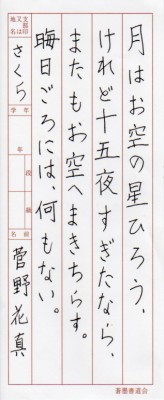 月はお空の星ひろう、
けれど十五夜すぎたなら、
またもお空へまきちらす。
晦日ごろには、何もない。
支部印又は地名
さくら
学年
年
段
級
名前
菅野花真
書墨書道会